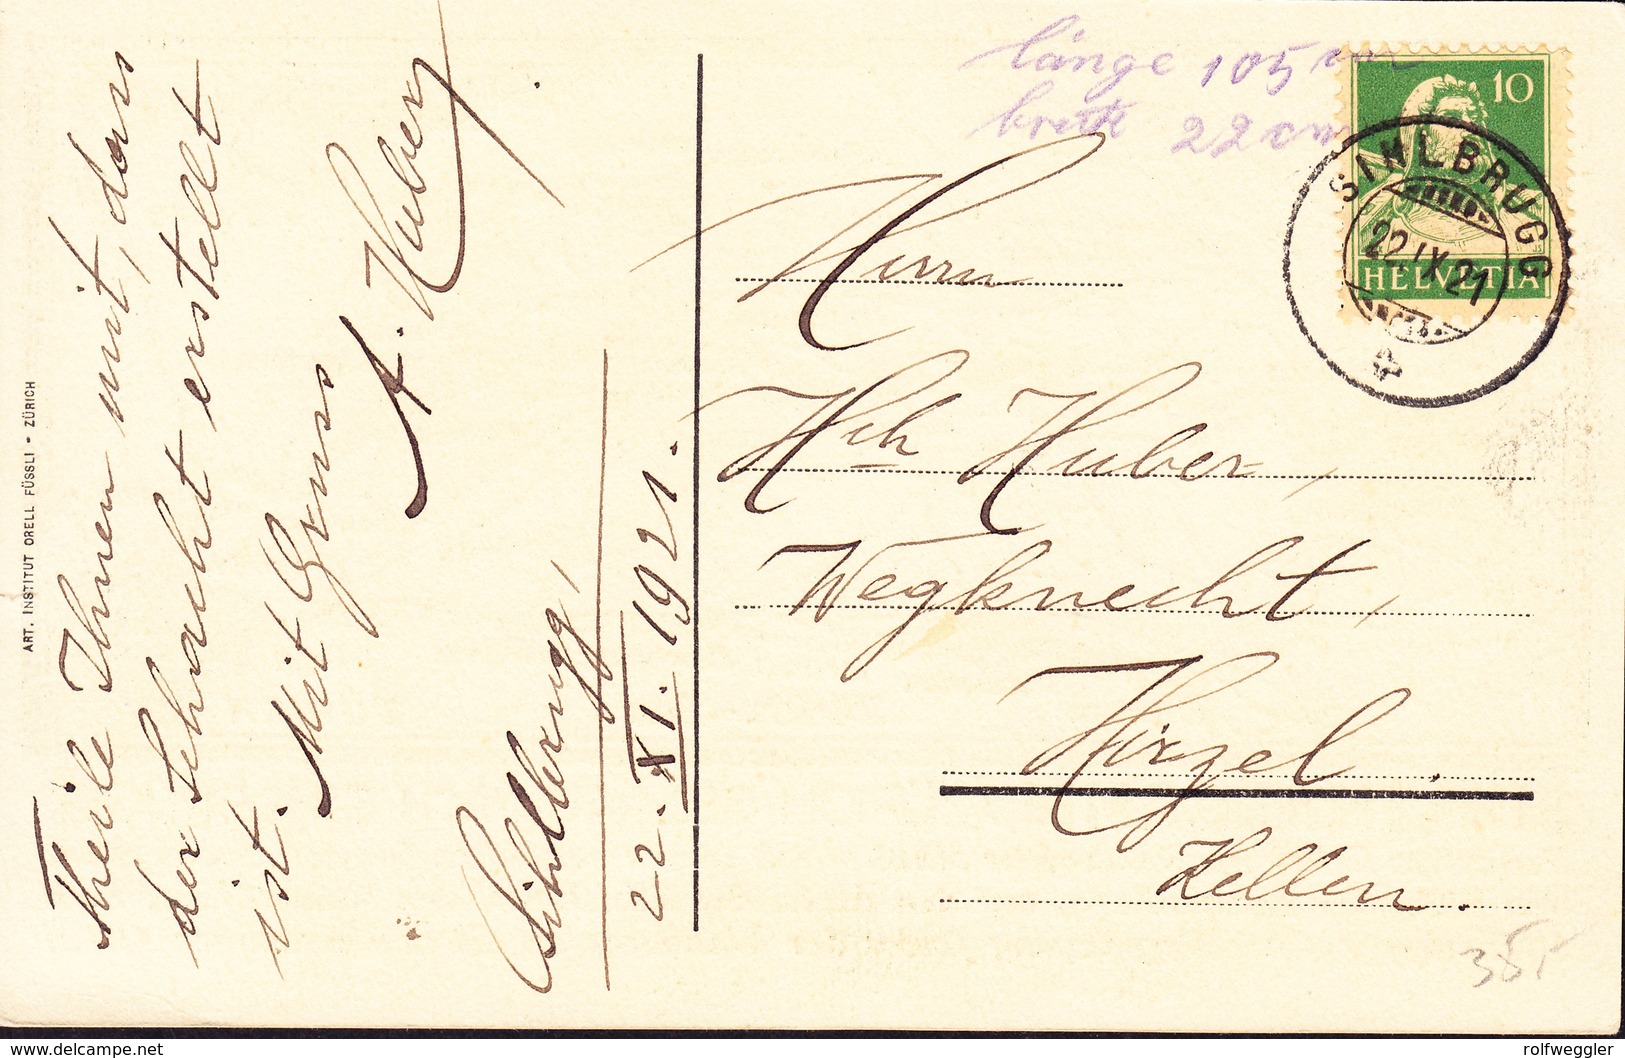 Theile Ihnen mit, dass
der Schacht erstellt
ist. Mit Gruss
A. Huber
Sihlbrugg,
22. XI. 1921.
ART. INSTITUT ORELL FÜSSLI - ZÜRICH
länge 105 cm
breite 22 cm
10
HELVETIA
SIHLBRUGG
22.IX.21
Herrn
Hch Huber,
Wegknecht,
Hirzel.
Hellen.
© www.delcampe.net
rolfweggler